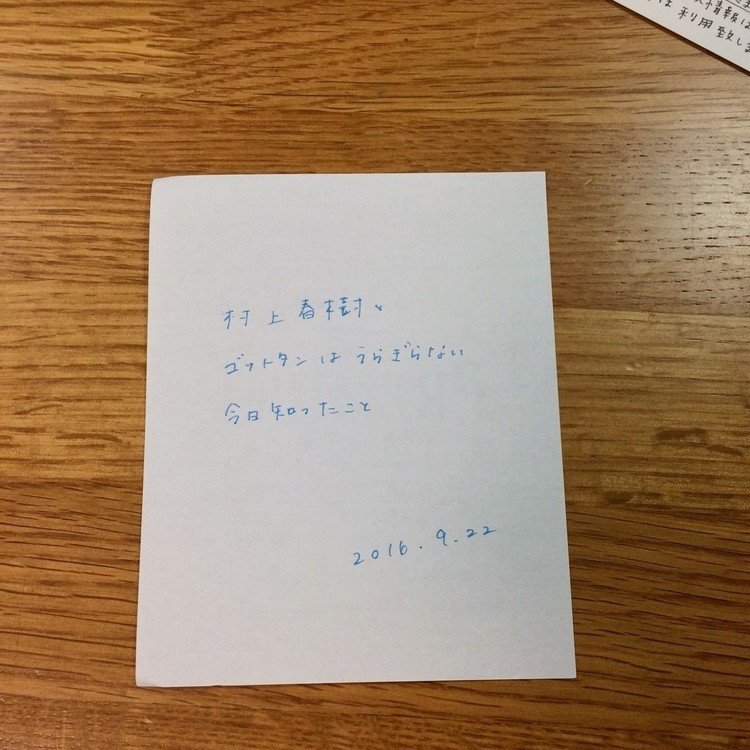 情報は
利用致しま
村上春樹と
ゴットタンはうらぎらない
今日知ったこと
2016.9.22